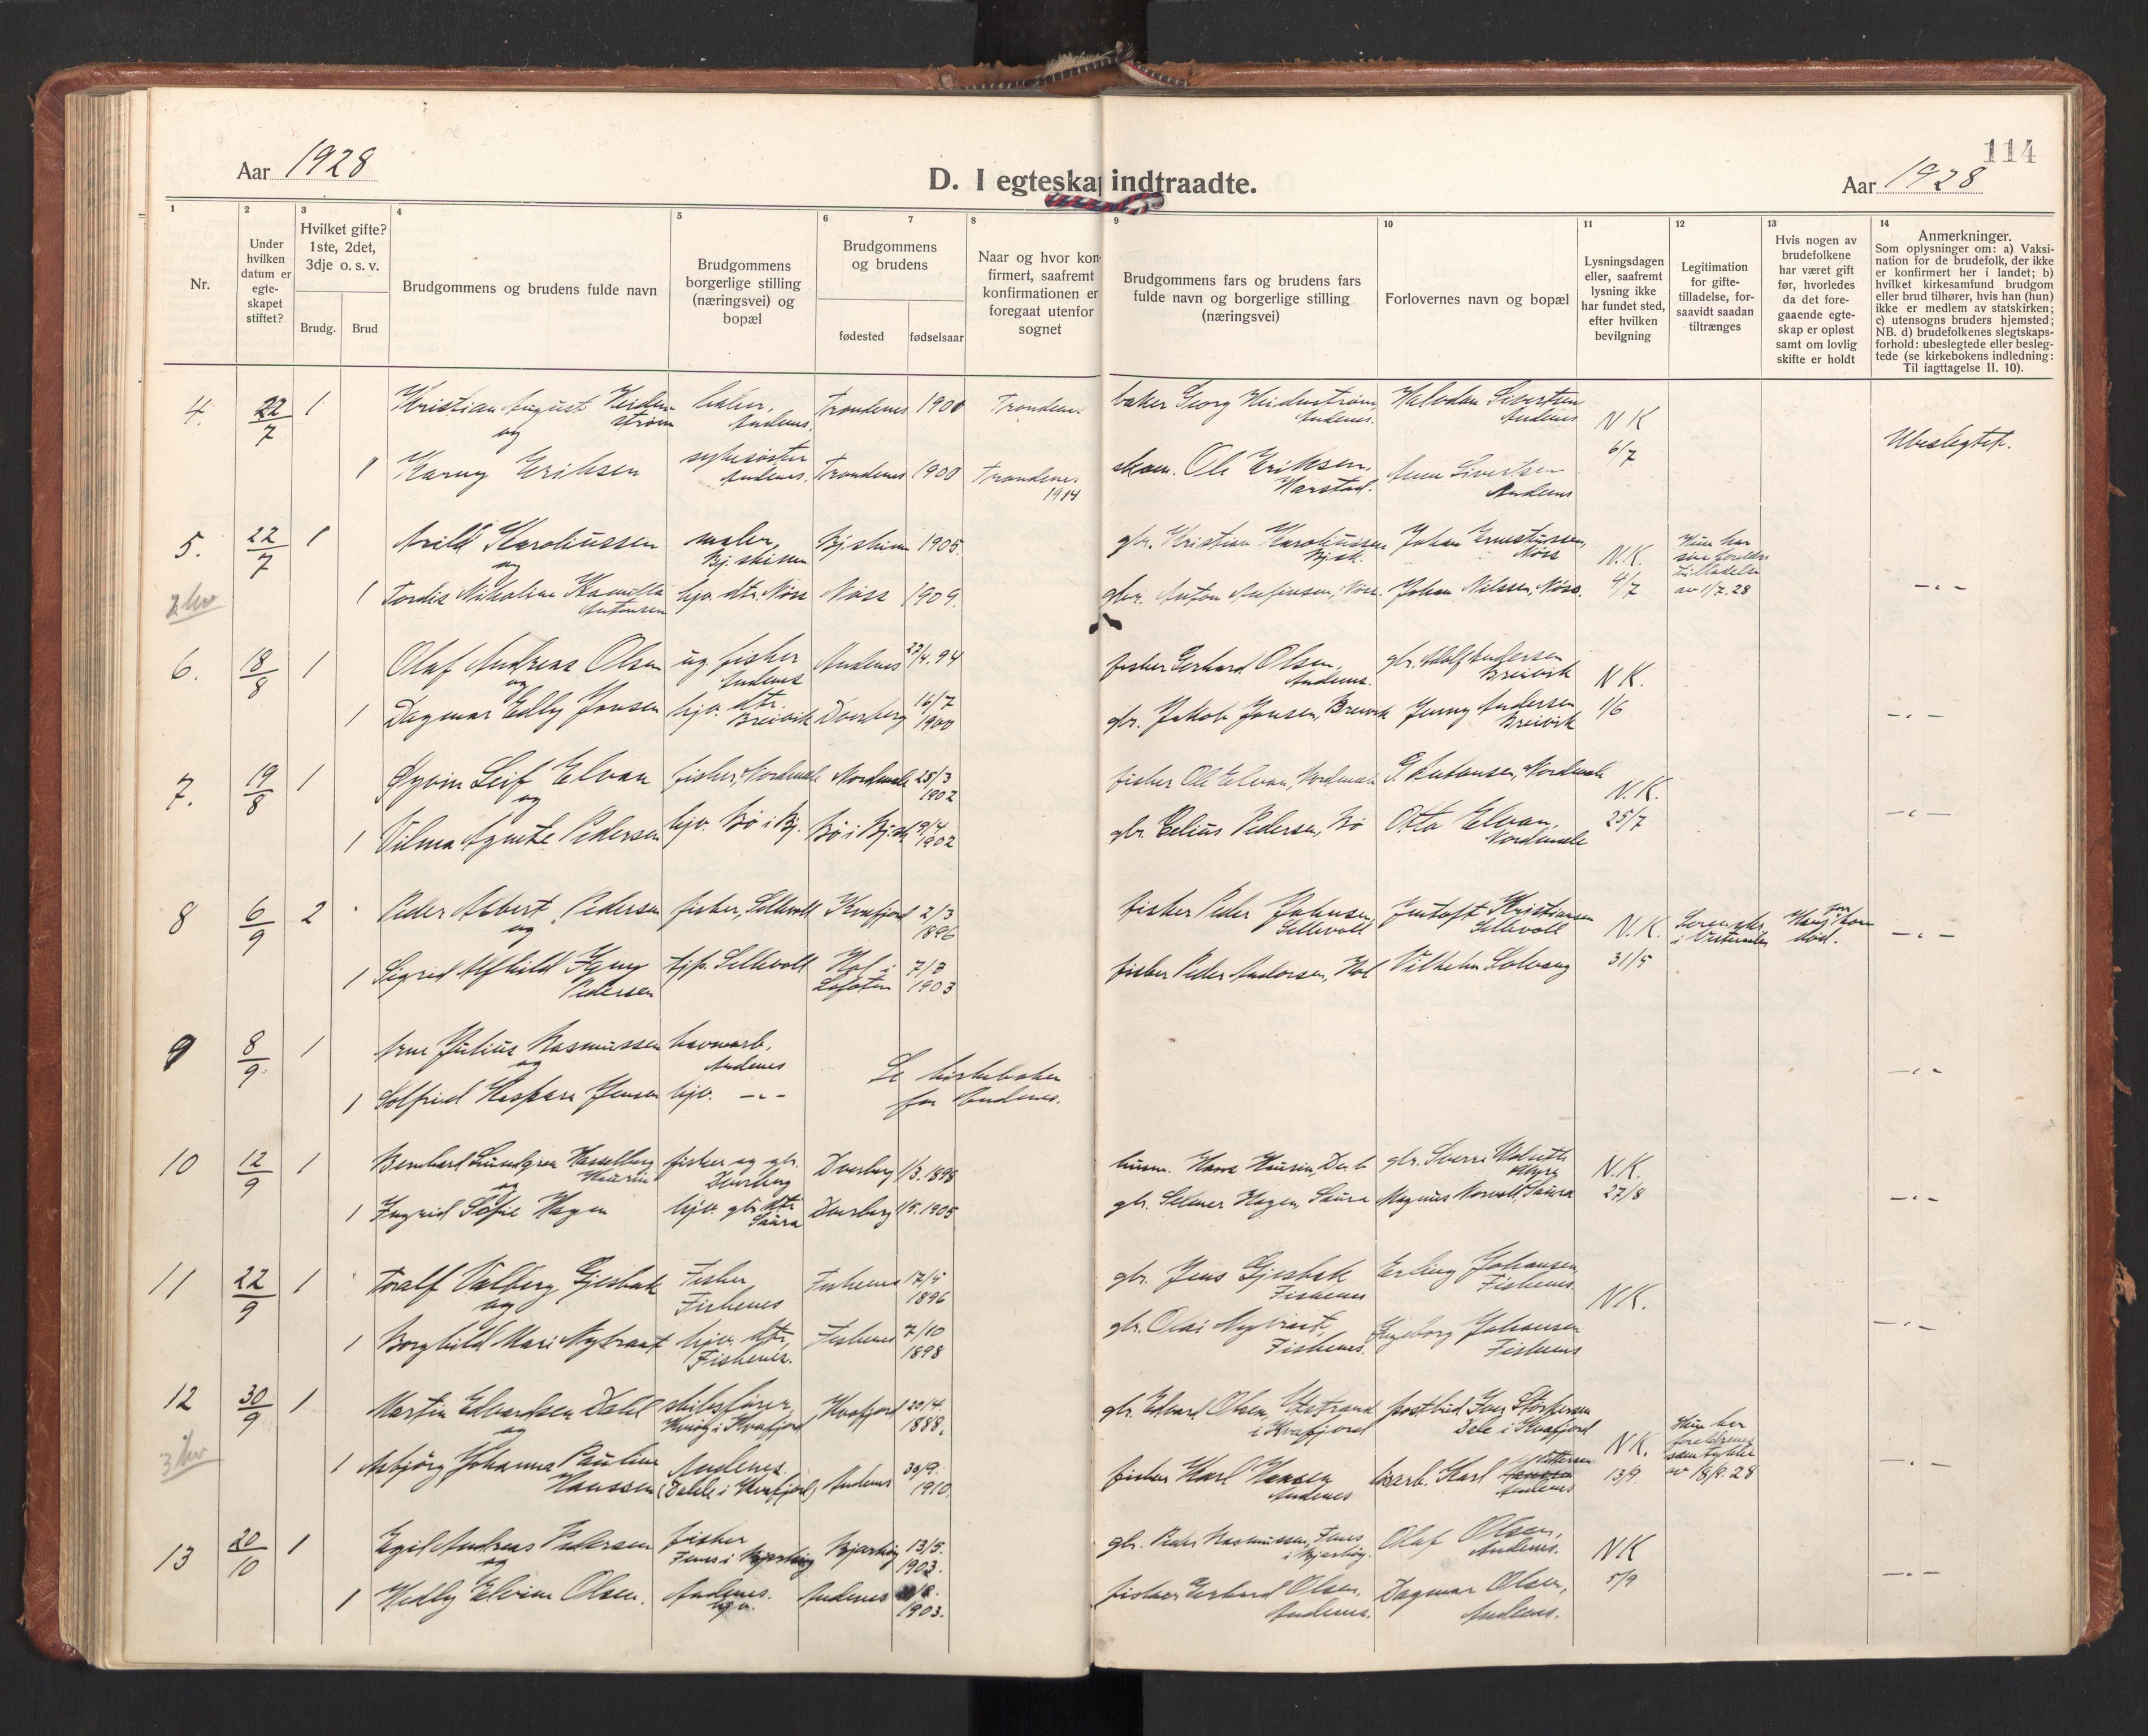 114
Aar 1928
D. I egteskap indtraadte.
Aar 1928
1
2
3
4
5
6
7
8
9
10
11
12
13
14
Nr.
Under hvilken datum er egte-skapet stiftet?
Hvilket gifte? 1ste, 2det, 3dje o. s. v.
Brudg.
Brud
Brudgommens og brudens fulde navn
Brudgommens borgerlige stilling (næringsvei) og bopæl
Brudgommens og brudens
fødested
fødselsaar
Naar og hvor kon-firmert, saafremt konfirmationen er foregaat utenfor sognet
Brudgommens fars og brudens fars fulde navn og borgerlige stilling (næringsvei)
Forlovernes navn og bopæl
Lysningsdagen eller, saafremt lysning ikke har fundet sted, efter hvilken bevilgning
Legitimation for gifte-tilladelse, for-saavidt saadan tiltrænges
Hvis nogen av brudefolkene har været gift før, hvorledes da det fore-gaaende egte-skap er opløst samt om lovlig skifte er holdt
Anmerkninger.
Som oplysninger om: a) Vaksi-nation for de brudefolk, der ikke er konfirmert her i landet; b) hvilket kirkesamfund brudgom eller brud tilhører, hvis han (hun) ikke er medlem av statskirken; c) utensogns bruders hjemsted; NB. d) brudefolkenes slegtskaps-forhold: ubeslegtede eller besleg-tede (se kirkebokens indledning: Til iagttagelse II. 10).
4. 22/7 1 Kristian August Heidenstrøm baker, Andenes. Trondenes 1900 Trondenes baker Georg Heidenstrøm, Andenes. Halvdan Sivertsen Andenes N K 6/7
og
1 Karny Eriksen sykesøster Andenes. Trondenes 1900 Trondenes 1914 Ole Eriksen, Harstad. Sivertsen Andenes Ubeslegtet.
5. 22/7 1 Arild Karoliussen maler, Bj. skinn Bjskinn 1905. gbr. Kristian Karoliussen Bjsk. Johan Ernstussen, Nöss N.K. 4/7 Hun har sine foreldres tilladelse av 1/7.28
og
2 kv 1 Tordis Nikoline Kamilla Antonsen hjv. dtr. Nöss Nöss 1909. gbr. Anton Nöss. Johan Nilssen, Nöss. -"-
6. 18/8 1 Olaf Andreas Olsen ug. fisker Andenes Andenes 27/4.94 fisker Gerhard Olsen, Andenes. gbr. Adolf Andersen Breivik N K. 1/6
og
1 Dagmar Edly Jonsen hjv. dtr. Breivik Dverberg 16/7 1900 gbr. Jakob Jonsen, Breivik Jenny Andersen Breivik -"-
7. 19/8 1 Øyvin Leif Elvan fisker, Nordmela Nordmela 25/3 1902 fisker Ole Elvan, Nordmela Nordmela N.K. 25/7
og
1 Vilma Agnete Pedersen hjv. Bö i Bj. Bö i Bjsk 19/4 1902 gbr. Pedersen, Bö Otto Elvan, Nordmela -"-
8 6/9 2 Peder Albert Pedersen fisker, Selkvoll Kvæfjord 2/3 1896 fisker Peder Johnsen, Kristiansen N.K. 31/5 i Vesterålen Hans kone död. -"-
og
1 Sigrid Alfhild Jenny Pedersen Hol i Lofoten 7/3 1903 fisker Peder Andersen, Hol Vilhelm Solvang
9 8/9. 1 Arne Julius Rasmussen havnearb. Andenes
og Se kirkeboken for Andenes.
1 Solfrid Kaspara Jensen hjv. -"- -"-
10 12/9 1 Bernhard Lundgren Hasselberg fisker og gbr. Dverberg Dverberg 1/3.1898 gbr. Sverre N.K. 27/8
og
1 Ingrid Sofie Hagen hjv. gbr dtr Saura Dverberg 1/5.1905 gbr. Selmer Hagen, Saura Magnus Saura -"-
11 22/9 1 Toralf Valberg Gjesbak Fisker Fiskenes Fiskenes 17/5 1896 gbr. Jens Gjesbak Fiskenes Erling Johansen, Fiskenes. N K.
og
1 Borghild Mari Nybraat hjv. dtr, Fiskenes. Fiskenes 7/10 1898 gbr. Olai Nybraat, Fiskenes. Ingeborg Johansen Fiskenes -"-
12 30/9 1 Martin Edvardsen Dahl skibsfører, i Kvæfjord Kvæfjord 20/4. 1888. gbr. Edvard Olsen, i Kvæfjord postbud Iver Dale i Kvæfjord N K. 13/9 Hun har foreldrenes samtykke av 18/9.28
og
3 kv 1 Asbjörg Johanna Pauline Hanssen Andenes. (Dale i Kvæfjord) Andenes 30/9. 1910. fisker Karl Hansen Andenes Karl Andenes -"-
13 20/10 1 Egil Andreas Pedersen fisker Fines i Bjarköy Bjarköy 13/5. 1903. gbr. Peder Rasmussen, Fines i Bjarköy. Olaf Olsen, Andenes. N K 5/9
og
1 Hedly Elvine Olsen. Andenes. hjv. Andenes /8. 1903. fisker Gerhard Olsen, Andenes. Dagmar Olsen, Andenes. -"-